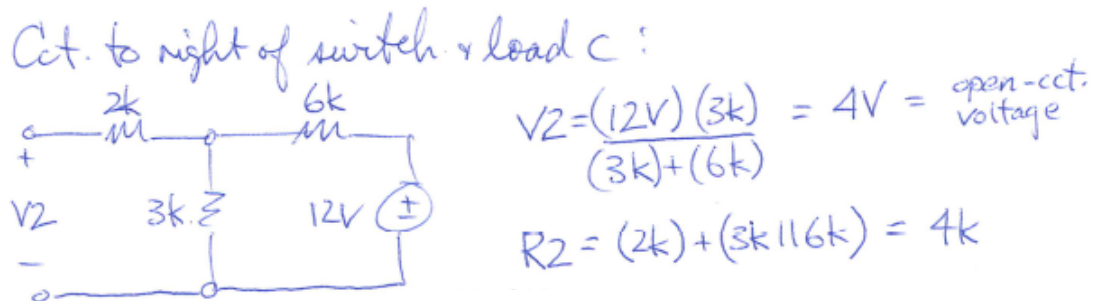 Cct. to right of switch & load C :
2k 6k
+
V2 3k 12V ±
-
V2 = (12V) (3k) / (3k)+(6k) = 4V = open-cct. voltage
R2 = (2k) + (3k || 6k) = 4k